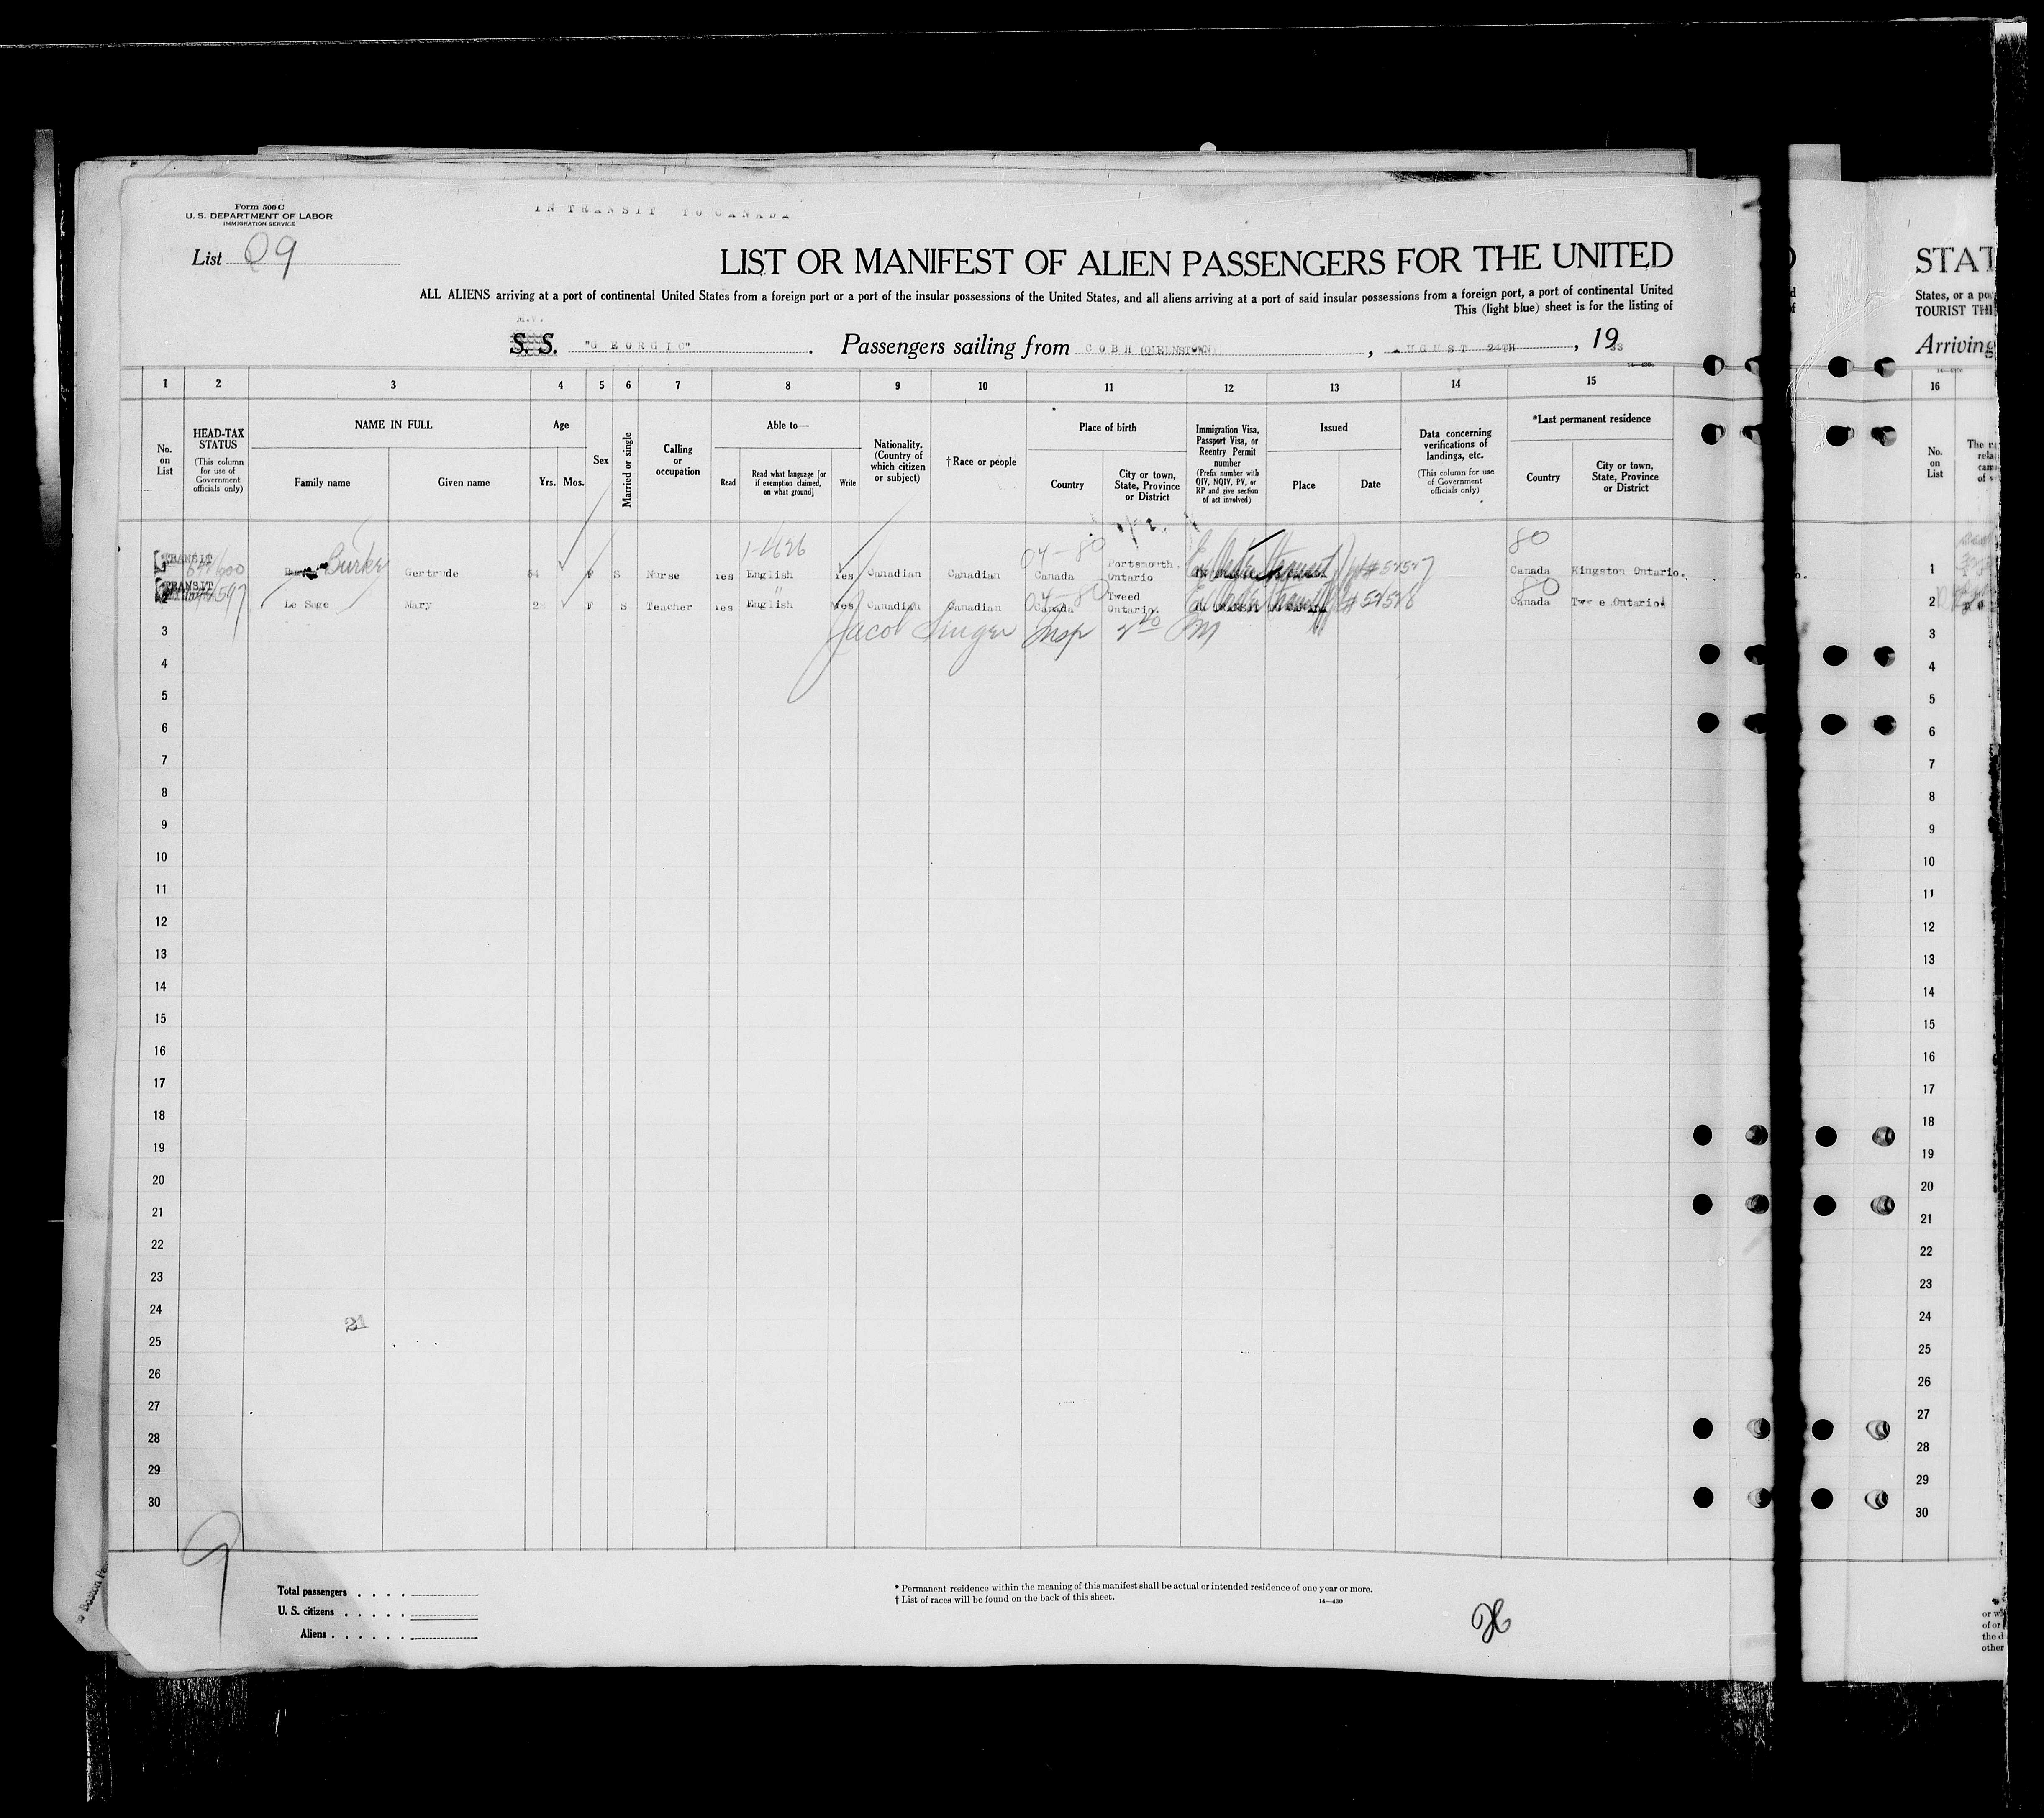 Form 500 C
U. S. DEPARTMENT OF LABOR
IMMIGRATION SERVICE
IN TRANSIT TO CANADA
List 09
LIST OR MANIFEST OF ALIEN PASSENGERS FOR THE UNITED
STAT
ALL ALIENS arriving at a port of continental United States from a foreign port or a port of the insular possessions of the United States, and all aliens arriving at a port of said insular possessions from a foreign port, a port of continental United
States, or a po
This (light blue) sheet is for the listing of
TOURIST THI
M.V.
S. S. "GEORGIC". Passengers sailing from COBH (QUEENSTOWN), AUGUST 24TH, 1933
Arriving
1 2 3 4 5 6 7 8 9 10 11 12 13 14 15 16
No. on List
HEAD-TAX STATUS (This column for use of Government officials only)
NAME IN FULL
Family name Given name
Age
Yrs. Mos.
Sex
Married or single
Calling or occupation
Able to—
Read Read what language [or if exemption claimed, on what ground] Write
Nationality. (Country of which citizen or subject)
† Race or people
Place of birth
Country City or town, State, Province or District
Immigration Visa, Passport Visa, or Reentry Permit number (Prefix number with QIV, NQIV, PV, or RP and give section of act involved)
Issued
Place Date
Data concerning verifications of landings, etc. (This column for use of Government officials only)
*Last permanent residence
Country City or town, State, Province or District
No. on List
1-4626 04-80 80
TRANSIT Burke Gertrude F S Nurse Yes English Yes Canadian Canadian Canada Portsmouth. Ontario Canada Kingston Ontario. 1
TRANSIT Le Sage Mary F S Teacher Yes English " Yes Canadian Canadian 04-80 Canada Tweed Ontario. 80 Canada Ontario. 2
Jacob Singer Insp PM
3 3
4 4
5 5
6 6
7 7
8 8
9 9
10 10
11 11
12 12
13 13
14 14
15 15
16 16
17 17
18 18
19 19
20 20
21 21
22 22
23 23
24 24
21
25 25
26 26
27 27
28 28
29 29
30 30
9
Total passengers . . . .
U. S. citizens . . . . .
Aliens . . . . . .
* Permanent residence within the meaning of this manifest shall be actual or intended residence of one year or more.
† List of races will be found on the back of this sheet.
14—430
or wi
of or
the d
other